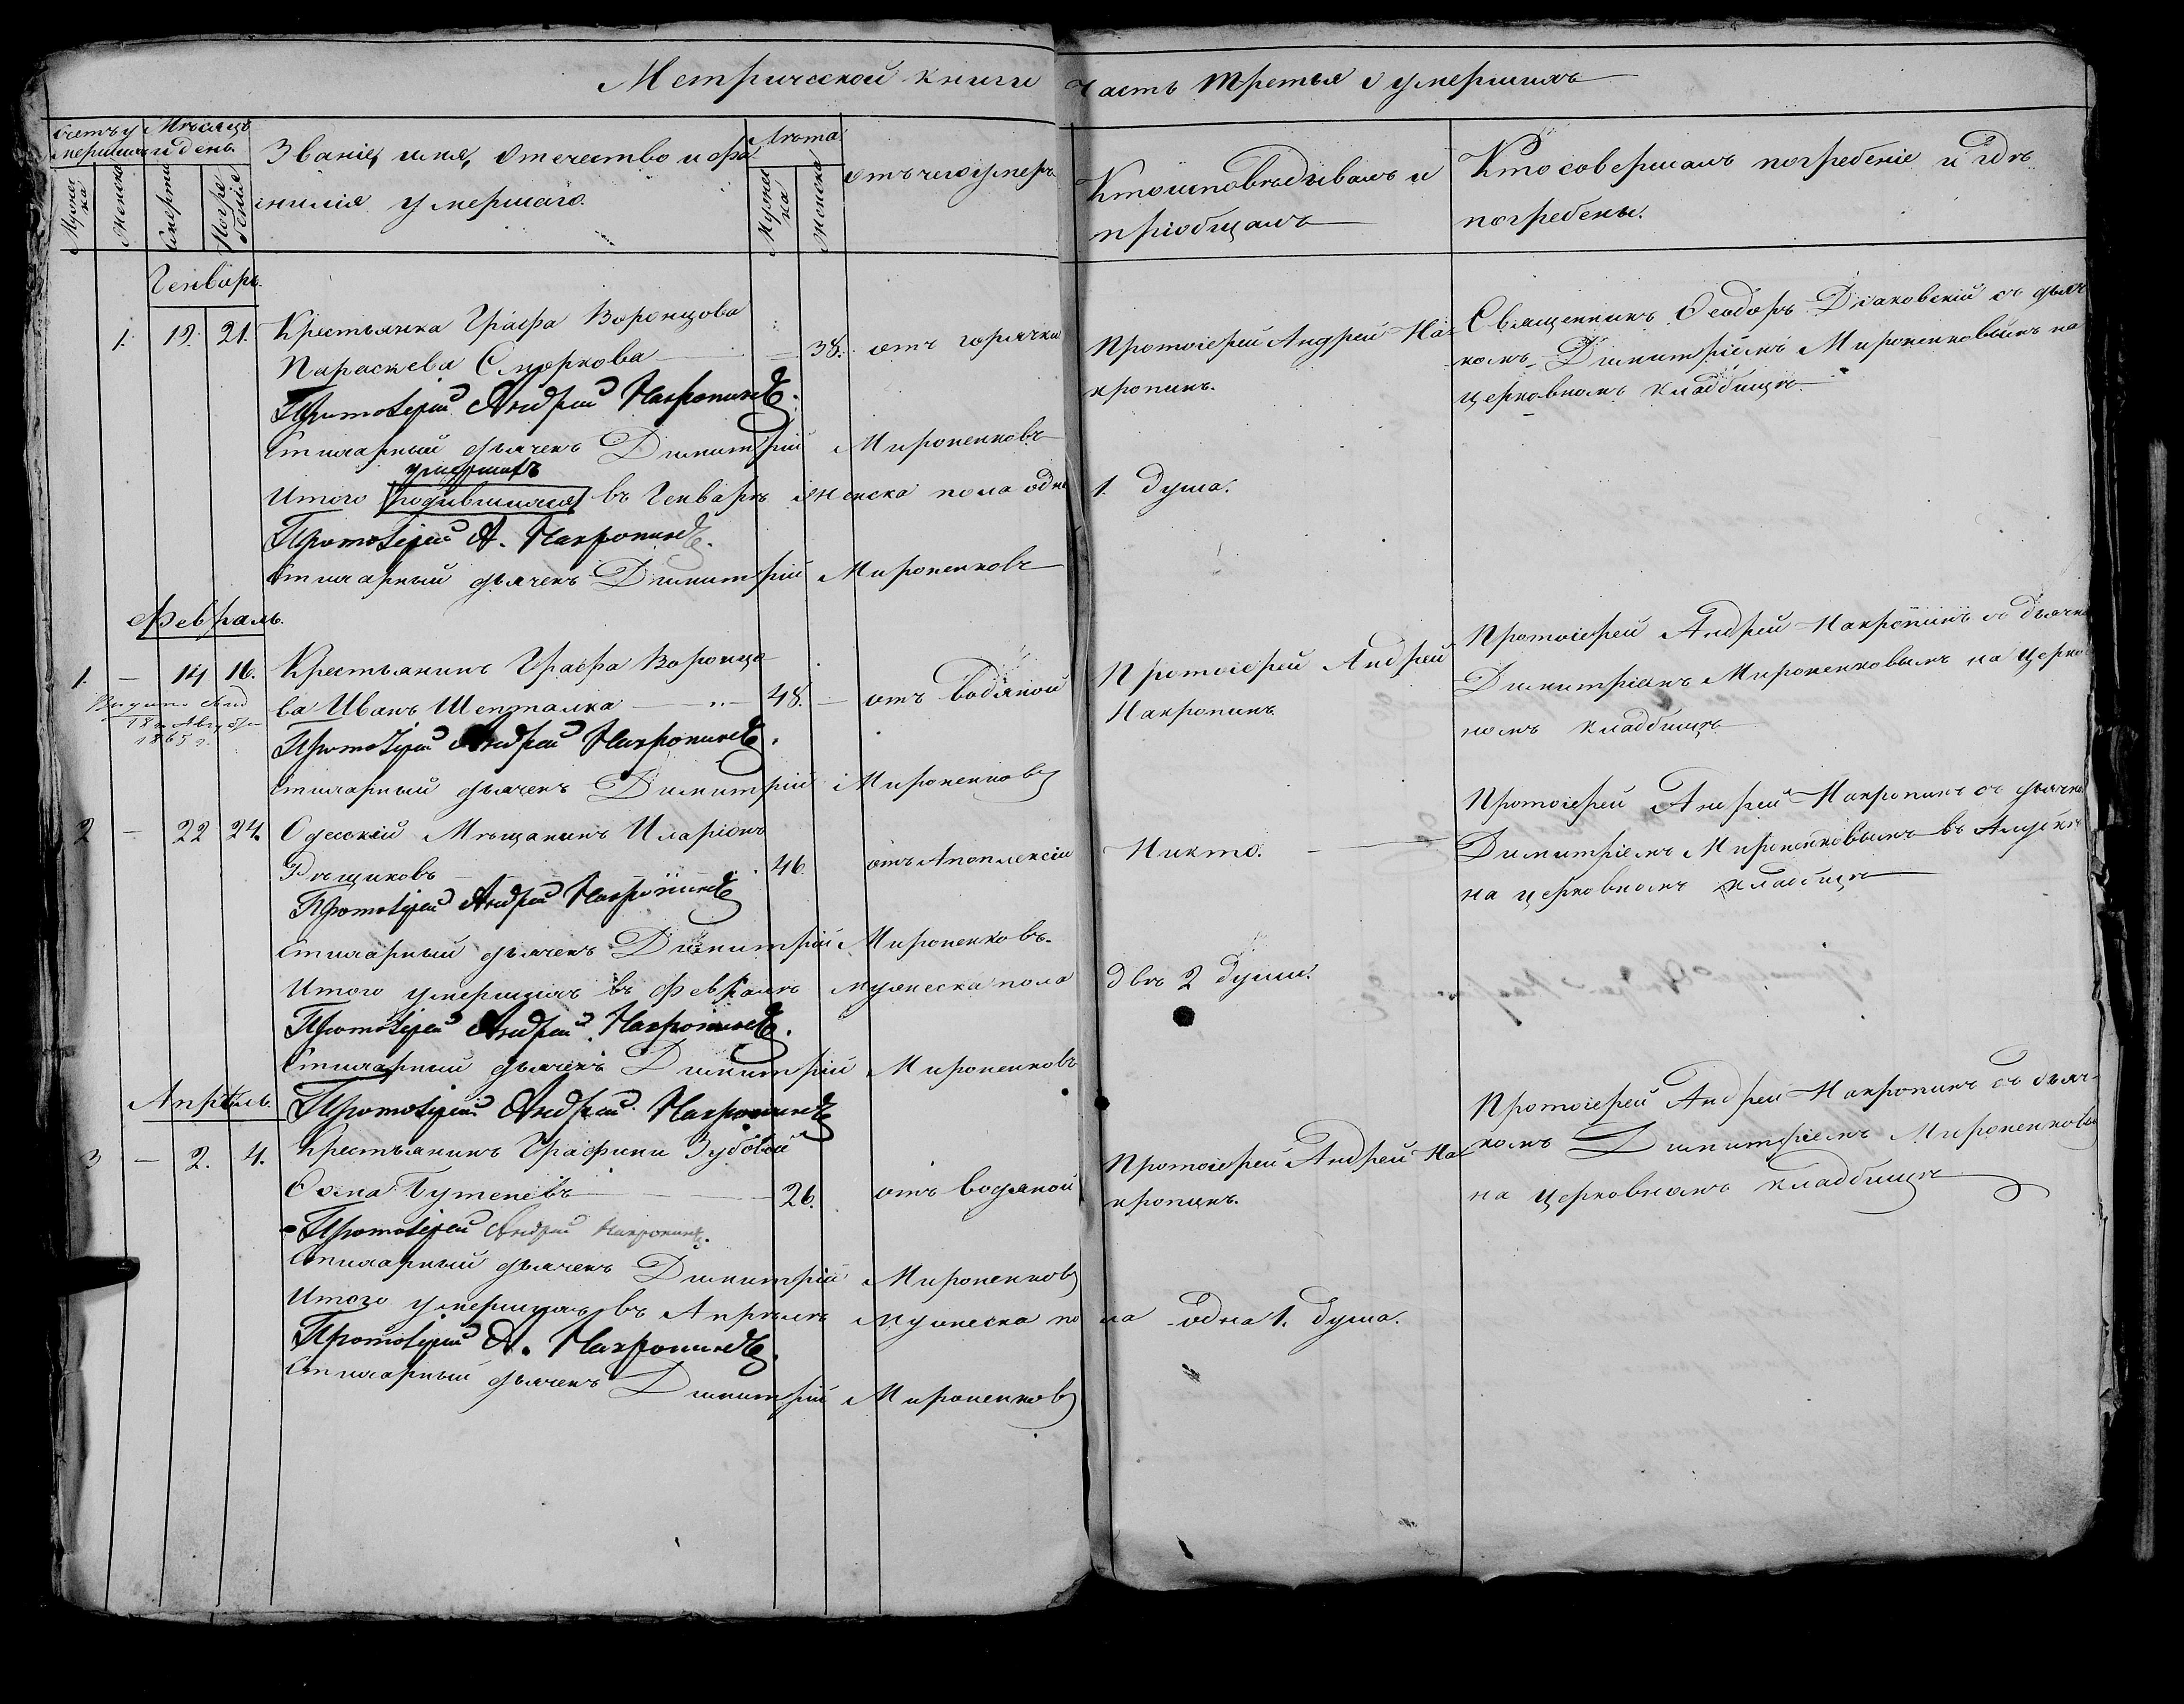 Метрической книги часть третья о умершихъ
Счетъ умершихъ
Мѣсяцъ и день
Званіе, имя, отечество и фамилія умершаго.
Лѣта
отъ чего умеръ
Кто исповѣдывалъ и пріобщалъ
Кто совершалъ погребеніе и гдѣ погребены.
Мужеска
Женска
Смерти
Погребенія
Мужеска
Женска
Генварь.
1. 19. 21. Крестьянка Графа Воронцова
Параскева Сморкова 38. отъ горячки
Протоіерей Андрей Накропинъ.
Священникъ Ѳеодоръ Діаковскій съ дьячкомъ Димитріемъ Мироненковымъ на
церковномъ кладбищѣ
Протоіерей Андрей Накропинъ.
Стихарный дьячекъ Димитрій Мироненковъ
умершихъ
Итого родившихся въ Генварѣ женска пола одна 1. душа.
Протоіерей А. Накропинъ.
Стихарный дьячекъ Димитрій Мироненковъ
Февраль.
1. — 14 16. Крестьянинъ Графа Воронцова Иванъ Шепталка 48. — отъ водяной
18го Августа
1865 г.
Протоіерей Андрей
Накропинъ.
Протоіерей Андрей Накропинъ съ дьячкомъ
Димитріемъ Мироненковымъ на церковномъ кладбищѣ
Протоіерей Андрей Накропинъ.
Стихарный дьячекъ Димитрій Мироненковъ
2 — 22 24. Одесскій Мѣщанинъ Иларіонъ
Рѣщиковъ 46. отъ Апоплексіи
Никто.
Протоіерей Андрей Накропинъ съ дьячкомъ
Димитріемъ Мироненковымъ въ Алупкѣ
на церковномъ кладбищѣ
Протоіерей Андрей Накропинъ
Стихарный дьячекъ Димитрій Мироненковъ.
Итого умершихъ въ Февралѣ мужеска пола двѣ 2 души.
Протоіерей Андрей Накропинъ.
Стихарный дьячекъ Димитрій Мироненковъ
Апрѣль.
Протоіерей Андрей Накропинъ
3 — 2. 4. Крестьянинъ Графини Зубовой
Ѳома Бутеневъ 26. отъ водяной
Протоіерей Андрей Накропинъ.
Протоіерей Андрей Накропинъ съ дьячкомъ Димитріемъ Мироненковымъ
на церковномъ кладбищѣ
Протоіерей Андрей Накропинъ.
Стихарный дьячекъ Димитрій Мироненковъ
Итого умершихъ въ Апрѣлѣ мужеска пола одна 1. душа.
Протоіерей А. Накропинъ.
Стихарный дьячекъ Димитрій Мироненковъ